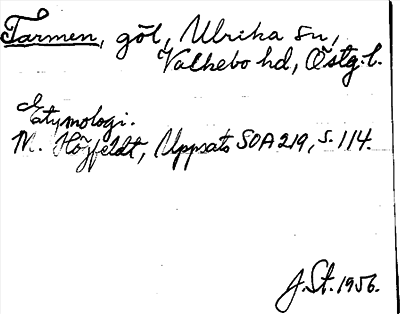 Tarmen, göl, Ulrika sn,
Valkebo hd, Östg. l.
Etymologi.
M. Höjfeldt, Uppsats SOA 219, s. 114.
J. St. 1956.